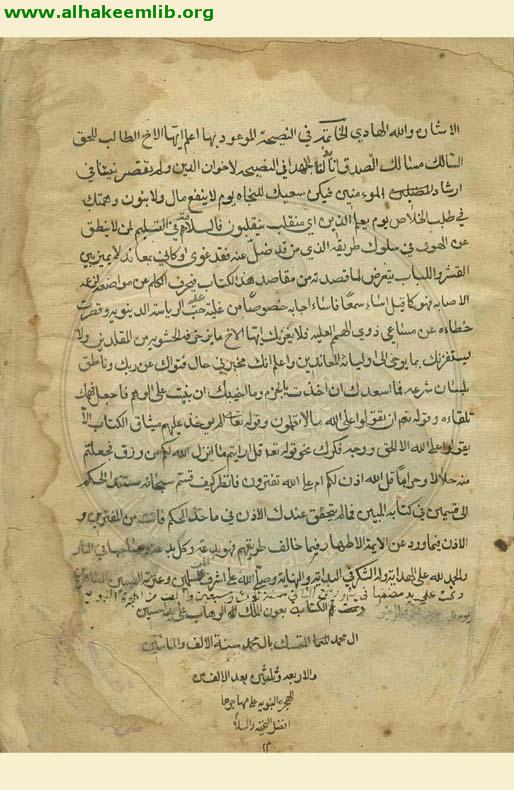 www.alhakeemlib.org
الاشارة والله الهادي الخاتمة في النصيحة الموعود بها اعلم ايها الاخ الطالب للحق
السالك مسالك الصدق الجهد في النصيحة لاخوان الدين ولم يقصر نيتنا في
ارشاد الموءمنين فيكن سعيك للنجاة يوم لا ينفع مال ولا بنون وهمتك
في طلب الخلاص يوم يعلم الذين اي منقلب ينقلبون فالسلامة في التسليم لمن لا ينطق
عن الهوى في سلوك طريقه الذي من قد ضل عنه فقد غوى او كاني بمعاند لا يميز بين
القشر واللباب يتعرض لما قصدته من مقاصد هذا كتاب فيحرف الكلم عن مواضعه
الاصابة فهو كما قيل اساء سمعا فاساء اجابه خصوصا من غلبة حب الرياسة الدنيوية وقصرت
خطاءه عن مساعي ذوي الهمم العلية فلا يغرنك ايها الاخ ما زخرفه الحشوية من المقلدين ولا
يستفزنك بما يوحى الى اوليائه المعاندين واعلم انك مخبر في حال فتواك عن ربك وناطق
بلسان شرعه فما اسعدك ان اخذت بالجزم وما اخيبك ان بنيت على الوهم فاجعل فهمك
تلقاءه وقوله تعم ان تقولوا على الله ما لا تعلمون وقوله تعالى الم يوخذ عليهم ميثاق الكتاب الا
يقولوا على الله الا الحق ووجه فكرك نحو قوله تعم قل ارايتم ما انزل الله لكم من رزق فجعلتم
منه حلالا وحراما قل الله اذن لكم ام على الله تفترون فانظر كيف قسم سبحانه مستند الحكم
الى قسمين في كتابه المبين فما لم يتحقق عندك الاذن في ماخذ الحكم فانت من المفترين و
الاذن فيما ورد عن الائمة الاطهار فيما خالف طريقهم فهو بدعة وكل بدعة وصاحبها في النار
والحمد لله على الهداية وله الشكر في البداية والنهاية وصلى الله على اشرف المرسلين وعترته الطيبين الطاهرين
وتمت على يد مصنفها في ربيع الثاني سنة وسبعين والف من الهجرة النبوية
تمت الكتاب بعون الملك الله الوهاب على يد
ال محمد المتمسك بال محمد سنة الالف والماتين
والاربعة وثلثين بعد الالف من
الهجرة النبوية على مهاجرها
افضل التحية والسلام